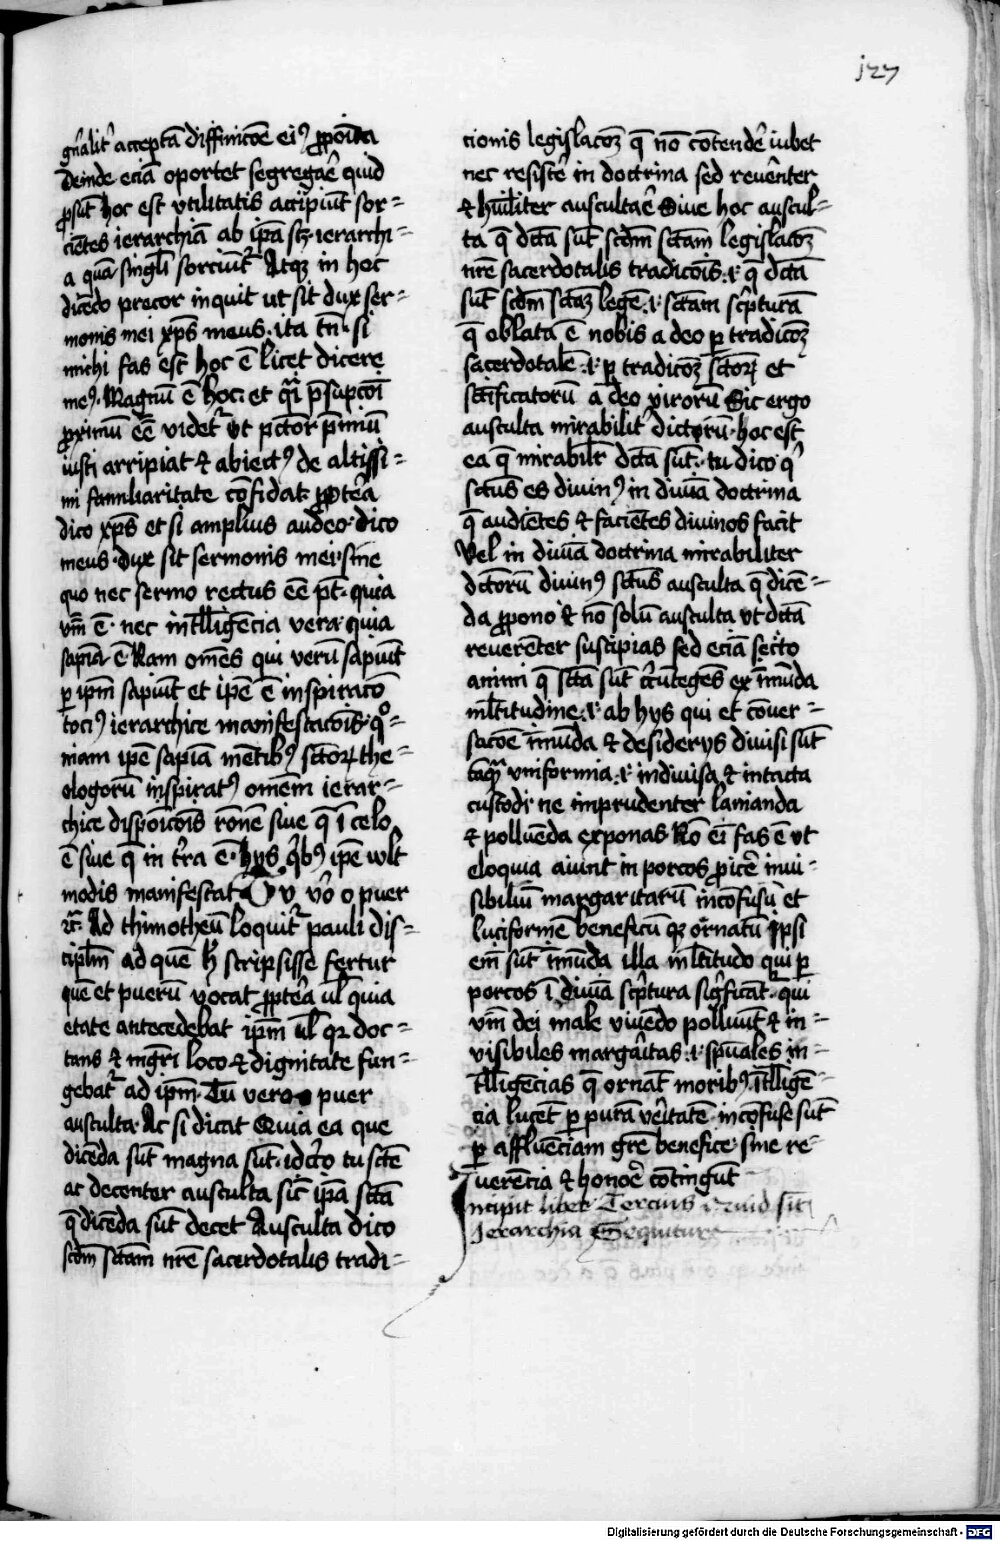 127
gn̄alit᷑ acceptā diffinicōe ei⁹ ꝓpōita
Deinde eciā oportet segregar̄e quid
ꝓsūt hoc est vtilitatis accipiūt sor⸗
cientes ierarchiā ab ip̄a scꝫ ierarchi⸗
a quā singl̄i sorciunt᷑ Atqꝫ in hoc
dicēdo precor inquit ut sit dux ser⸗
monis mei xp̄s meus· ita tn̄· si
michi fas est hoc ē licet dicere
me⁹· Magnū ē hoc· et qͣi p̄supcōi
ꝓximū eē videt᷑ Vt pctōr p̄miū
iusti arripiat ⁊ abiect⁹ de altissi⸗
mi familiaritate cōfidat· ꝓpt̄ea
dico xp̄s et si amplius audeo· dico
meus· dux sit sermonis mei· sine
quo nec sermo rectus eē pt̄· quia
vm̄ ē· nec intll̄igēcia vera· quia
sapīa ē Nam om̄es qui verū sapiūt
ꝑ ip̄m sapiūt et ip̄e ē inspiratō
toci⁹ ierarchice manifestacōis· qͦ⸗
niam ip̄e sapīa mētib⁹ sctōꝝ the⸗
ologorū inspirat⁹ om̄em ierar⸗
chice disp̄oicōis rōnē siue q̄ ī celo
ē siue q̄ in t̄ra ē· hys qͥb⁹ ip̄e vult
modis manifestat Tu vͦ o puer
⁊c̄· Ad thimotheū loquit᷑ pauli dis⸗
cipl̄m ad quē h̄ scripsisse fertur
quē et puerū vocat ꝓpt̄ea ul̄ quia
etate antecedebat ip̄m ul̄ qꝛ doc⸗
tans ⁊ mgr̄i loco ⁊ dignitate fun⸗
gebat᷑ ad ip̄m· Tu vero o puer
ausculta· Ac si dicat Quia ea que
dicēda sūt magna sūt· idcͦo tu sctē
ac decenter ausculta sic̄ ip̄a sctā
q̄ dicēda sūt decet Ausculta dico
scdm̄ sctam nr̄e sacerdotalis tradi⸗
cionis legisl̄acōꝫ q̄ nō cōtendēr̄ iubet
nec resistēr̄ in doctrina sed reuēnter
⁊ hūiliter auscultar̄e Siue hoc auscul⸗
ta q̄ dctā sūt scdm̄ sctam legisl̄acōꝫ
nr̄e sacerdotalis tradicōis ·i· q̄ dctā
sūt scdm̄ sctaꝫ legē ·i· sctam sc̄pturā
q̄ oblata ē nobis a deo ꝑ tradicōꝫ
sacerdotalē ·i· ꝑ tradicōꝫ sctōꝝ et
sctificatorū a deo virorū Sic ergo
ausculta mirabilit᷑ dictorū· hoc est
ea q̄ mirabilr̄ dctā sūt· tu dico qͥ
sctūs es diuin⁹ in diuīa doctrina
q̄ audiētes ⁊ faciētes diuinos facit
Vel in diuīa doctrina mirabiliter
dctōrū diuin⁹ sctūs ausculta q̄ dicē⸗
da ꝓpono ⁊ nō solū ausculta vt dctā
reuerēter suscipias sed eciā secͤto
animi q̄ sctā sūt ct̄untegēs ex īmūda
ml̄titudine ·i· ab hys qui et cōuer⸗
sacōe īmūda ⁊ desiderys diuisi sūt
tāqͣ vniformia ·i· indiuisa ⁊ intacta
custodi· ne imprudenter lanianda
⁊ polluēda exponas Nō ei᷑ fas ē vt
eloquia aiunt in porcos ꝓicēr̄ inui⸗
sibiliū margaritarū incōfusū et
luciformē beneficū qꝫ ornatū Ipsi
em̄ sūt īmūda illa ml̄titudo qui ꝑ
porcos ī diuīa sc̄ptura sigͥficāt· qui
vm̄ dei male viuēdo polluūt ⁊ in⸗
visibiles margaritas ·i· spūales in⸗
tll̄igēcias q̄ ornāt moribꝰ ītll̄igē⸗
cia lucēt ꝑ purā veͥtatē incōfuse sūt
ꝑ affluēciam gr̄e benefice· sine re⸗
uerēcia ⁊ honoēr̄ cōtingūt
Incipit liber Tercius Quid sit
Jerarchia Sequitur
Digitalisierung gefördert durch die Deutsche Forschungsgemeinschaft - DFG